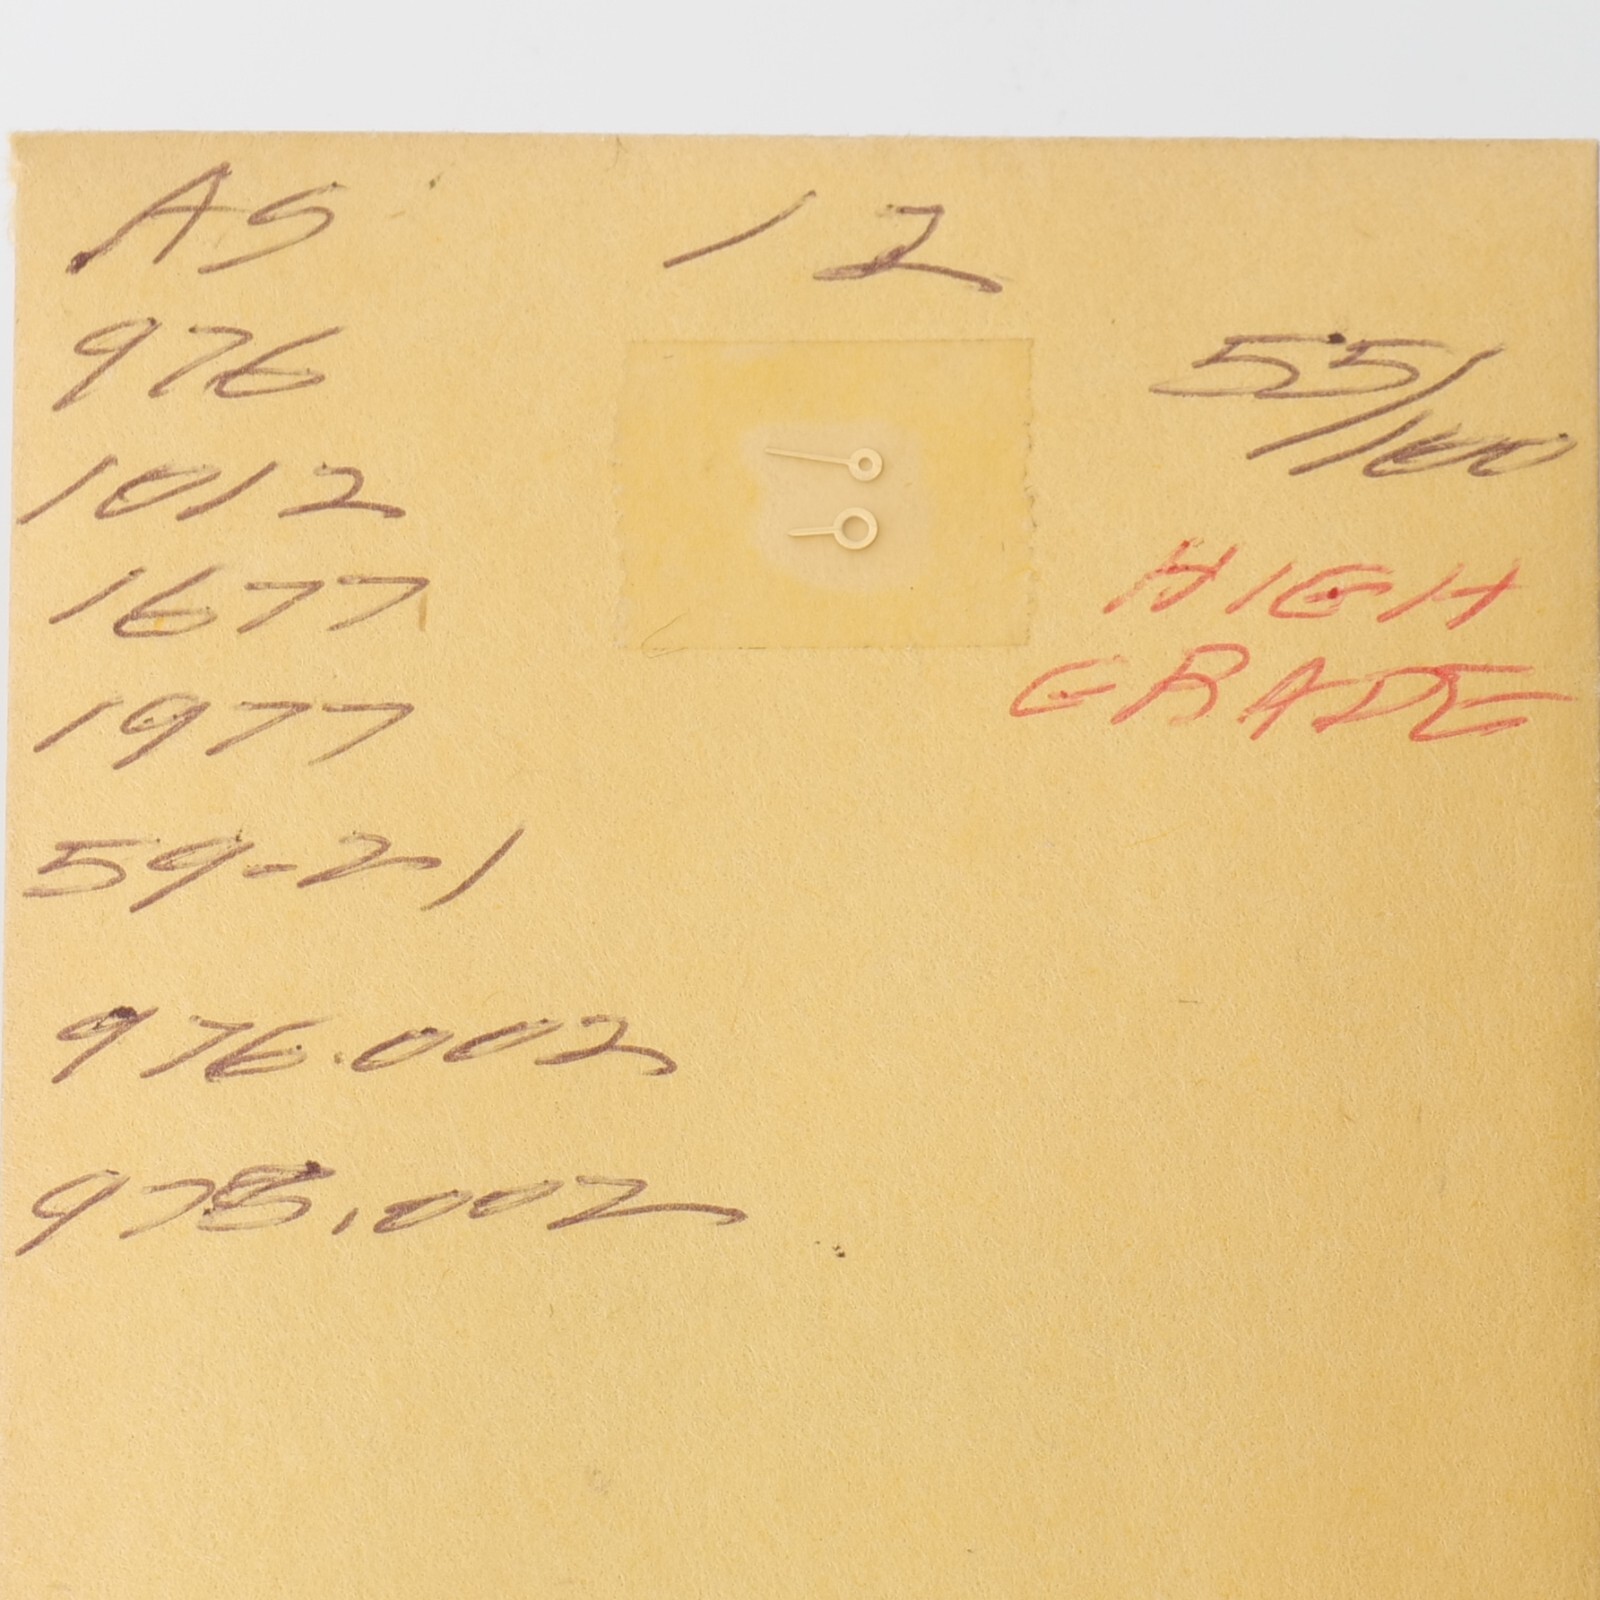 AS
12
976
55/100
1012
1677
HIGH
GRADE
1977
59-21
976.002
978.002